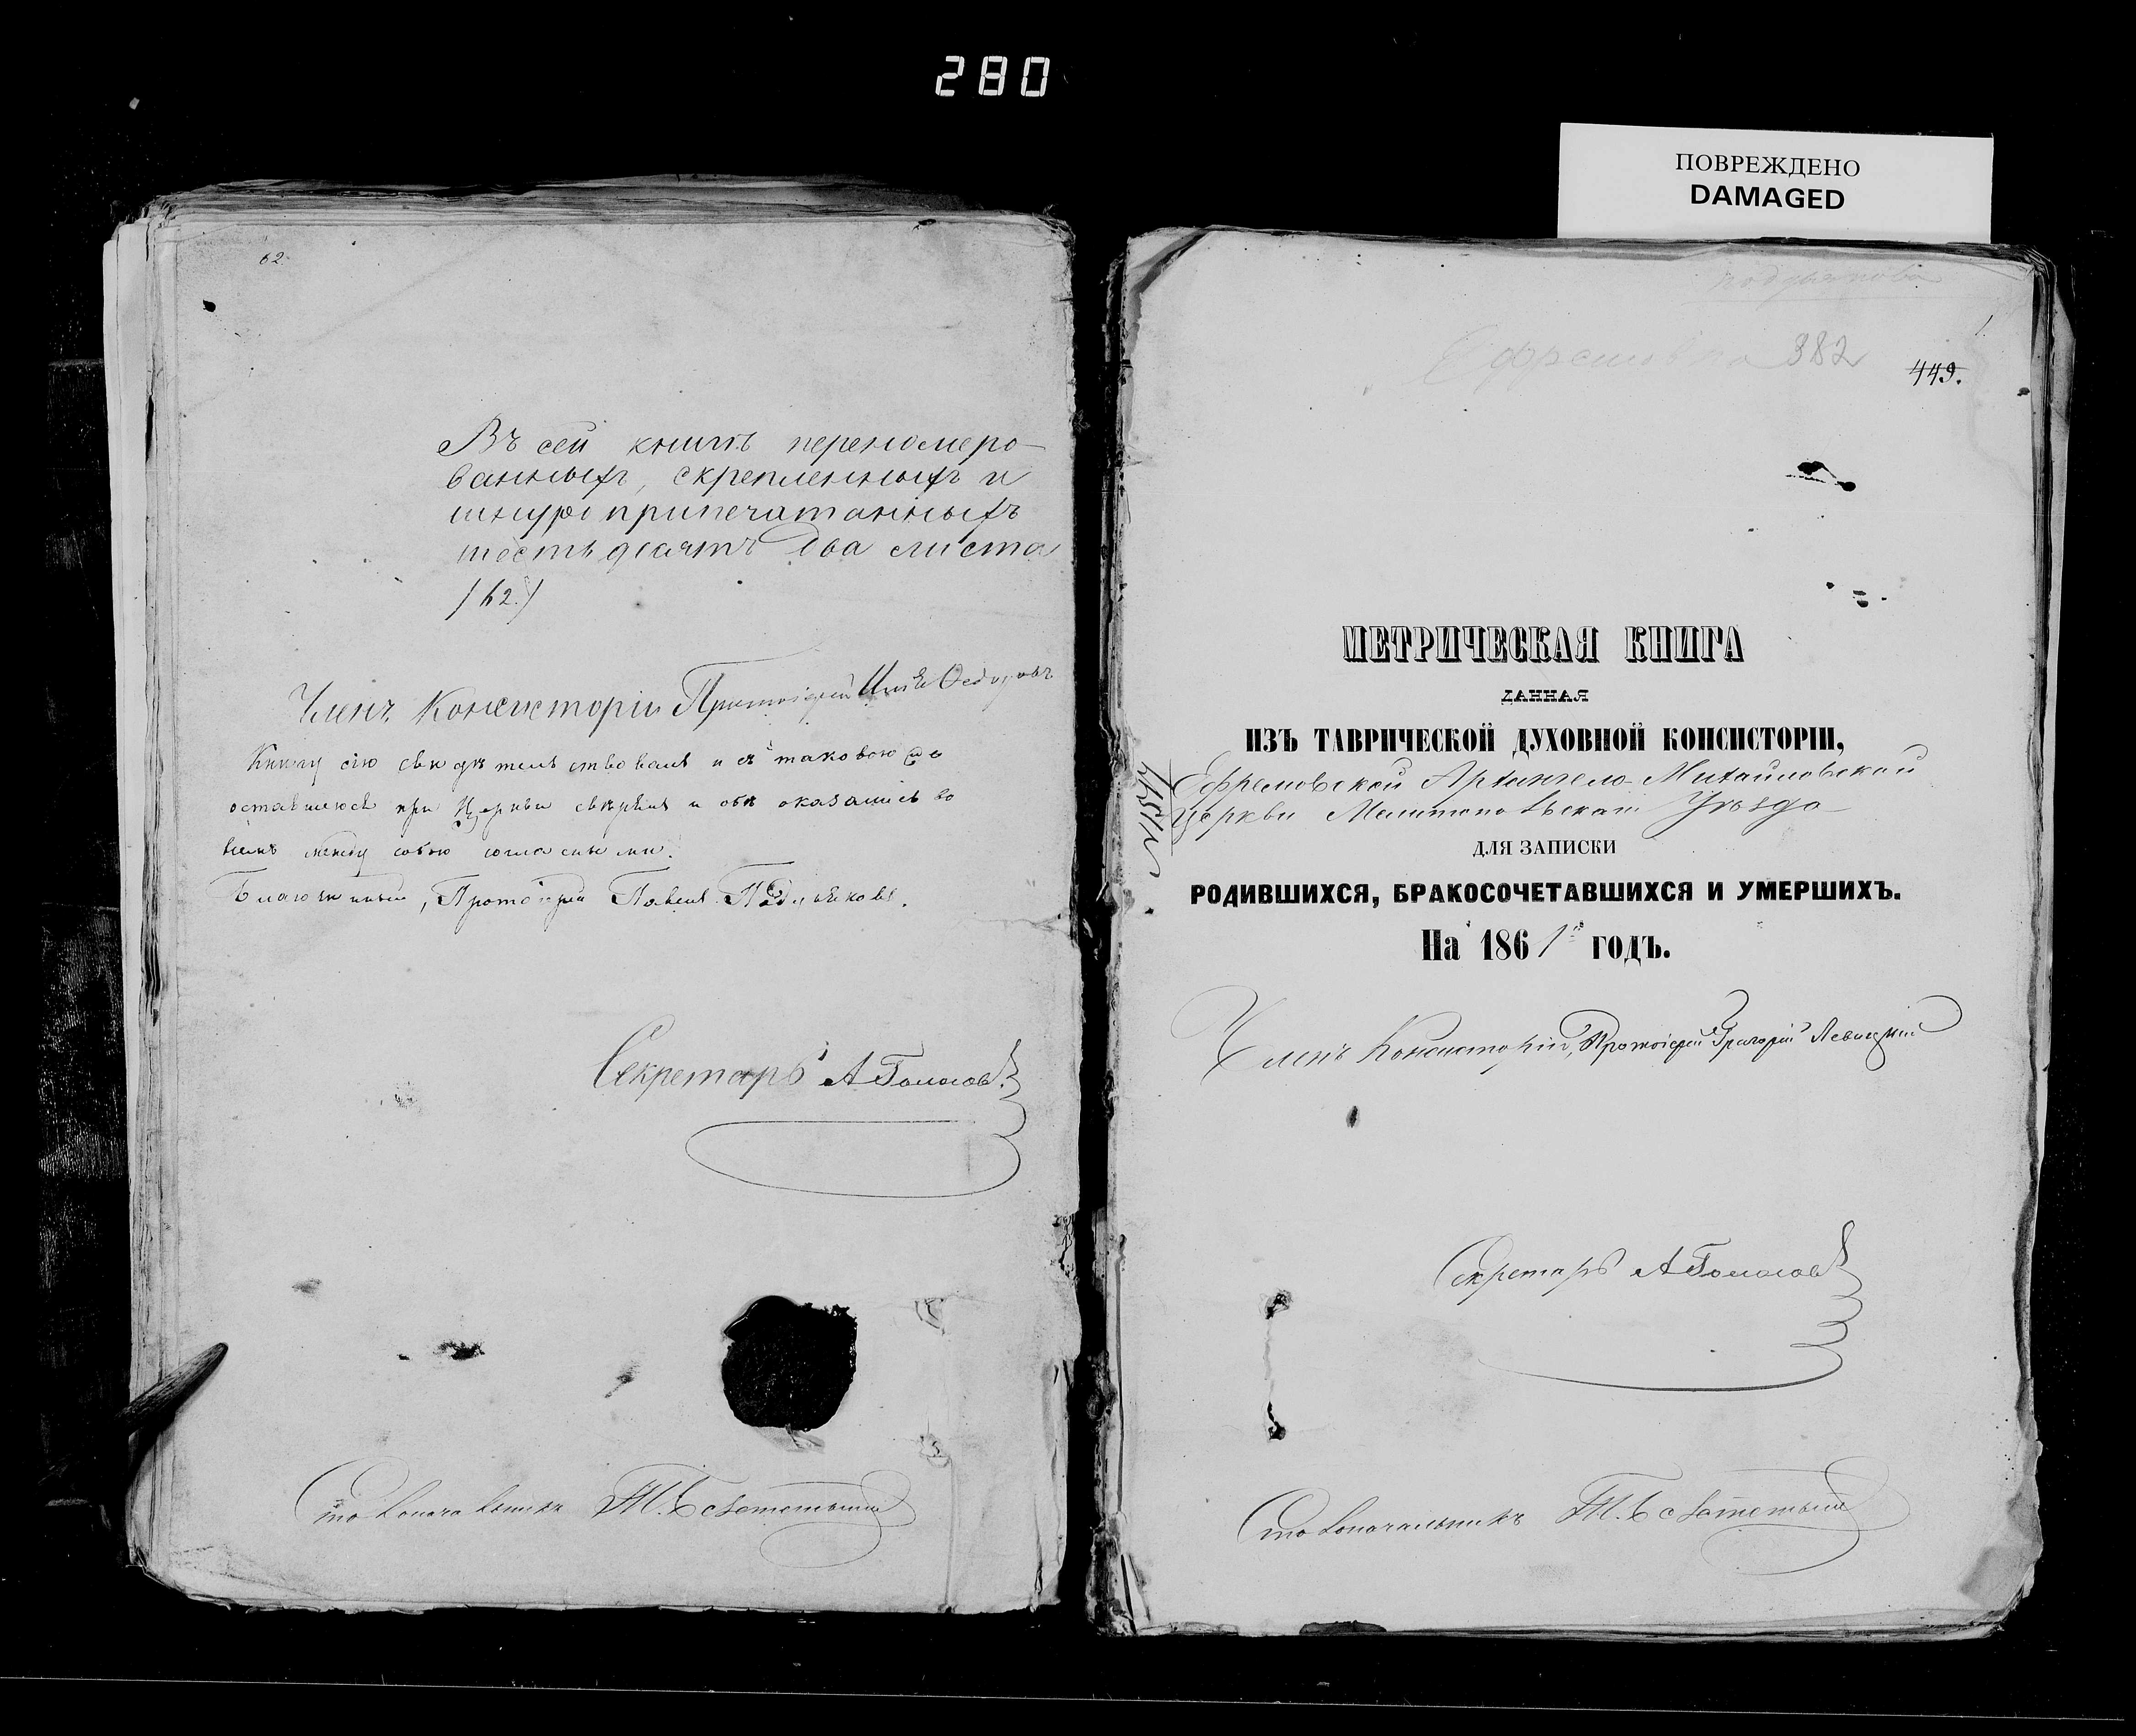 280
ПОВРЕЖДЕНО
DAMAGED
62.
Въ сей книгѣ переномеро-
ванныхъ, скрепленныхъ и
шнуро припечатанныхъ
шестьдесятъ два листа
/62./
Членъ Консисторіи Протоіерей Ѳедоровъ
Книгу сію свидѣтельствовалъ и съ таковою же
оставшеюся при Церкви свѣрялъ и обѣ оказались во
всемъ между собою согласными.
Благочинный, Протоіерей Павелъ
Секретарь А Гомолов
Столоначальникъ
Ефремовка 382
1.
449.
МЕТРИЧЕСКАЯ КНИГА
ДАННАЯ
ИЗЪ ТАВРИЧЕСКОЙ ДУХОВНОЙ КОНСИСТОРІИ,
Ефремовской Архангело-Михайловской
Церкви Мелитопольскаго Уѣзда
ДЛЯ ЗАПИСКИ
РОДИВШИХСЯ, БРАКОСОЧЕТАВШИХСЯ И УМЕРШИХЪ.
На 1861 ГОДЪ.
Членъ Консисторіи, Протоіерей Григорій Левицкій
Секретарь А Гомолов
Столоначальникъ